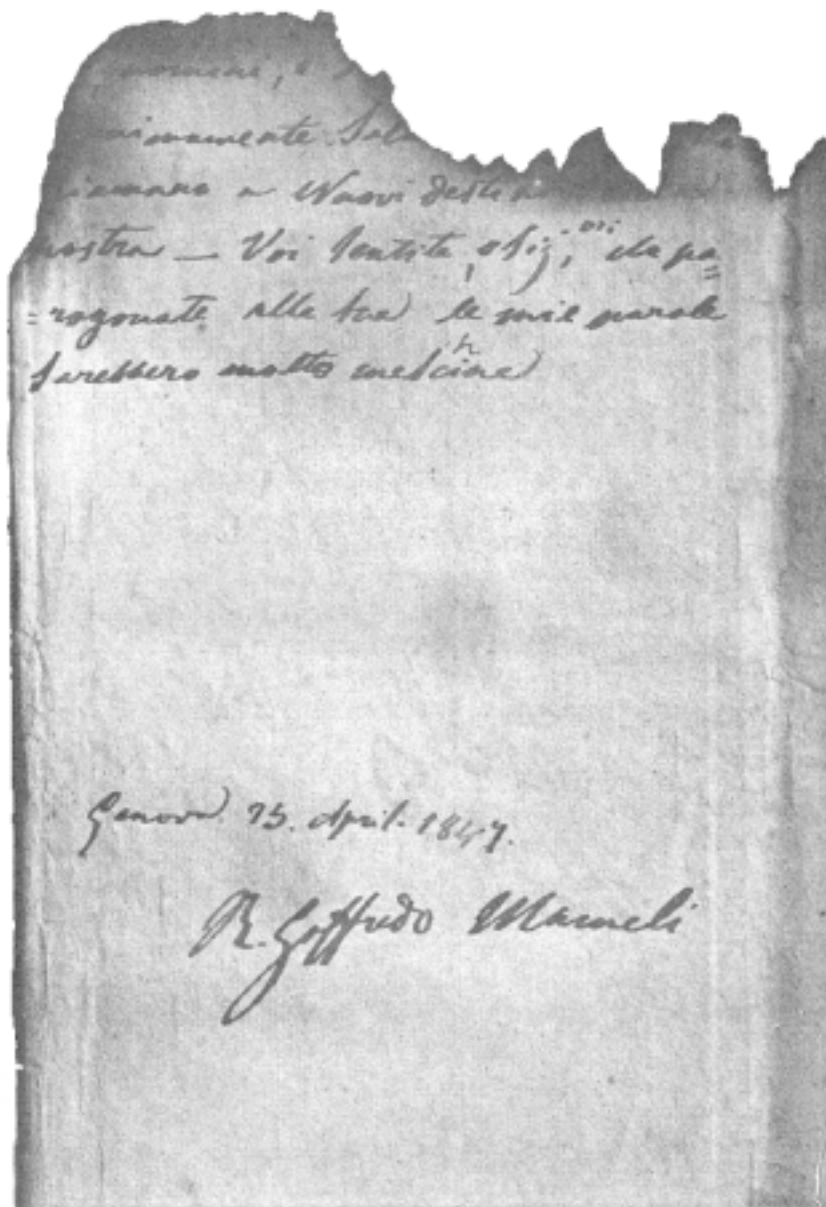 nomini, e
nimamente
iamano a Nuovi desti
nostra — Voi sentite, o Sig,ori che pa=
=ragonate alla sua le mie parole
sarebbero molto meschine
Genova 25. April. 1847.
R. Goffredo Mameli